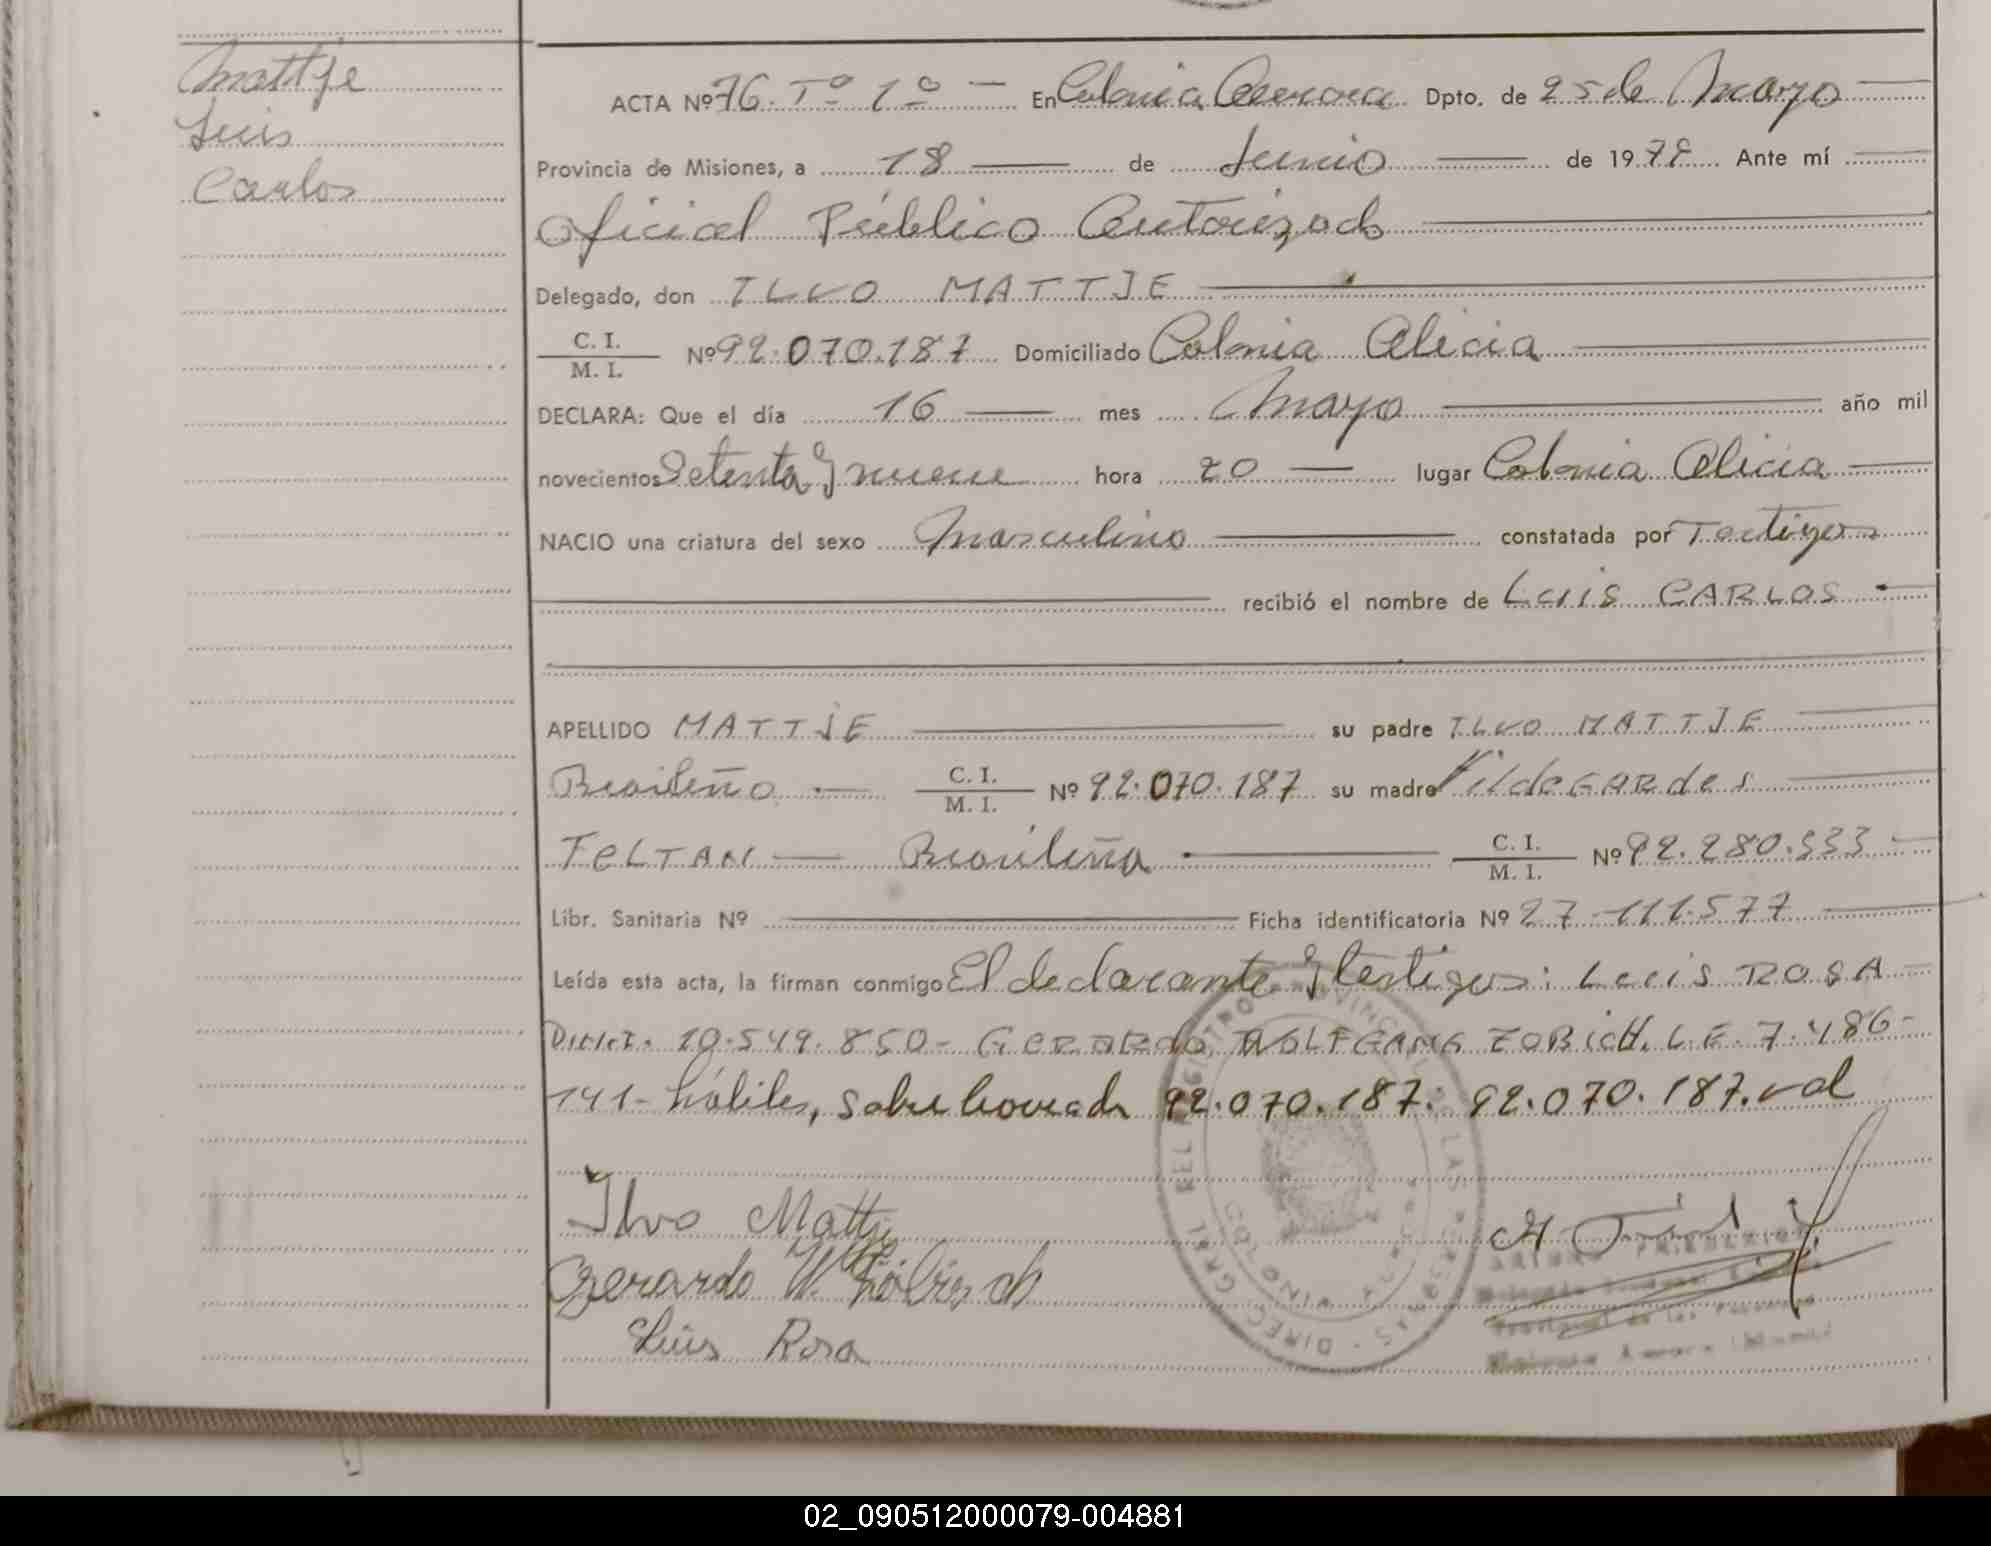 Mattje
Luis
Carlos
ACTA Nº 76. Tº 1º — En Colonia Aurora Dpto. de 25 de Mayo —
Provincia de Misiones, a 18 — de Junio — de 1979 Ante mí —
Oficial Público Autorizado —
Delegado, don ILVO MATTJE —
C. I. / M. I. Nº 92.070.187 Domiciliado Colonia Alicia —
DECLARA: Que el día 16 — mes Mayo — año mil
novecientos Setenta y nueve hora 20 — lugar Colonia Alicia —
NACIO una criatura del sexo Masculino — constatada por Testigos
— recibió el nombre de LUIS CARLOS —
APELLIDO MATTJE — su padre ILVO MATTJE —
Brasileño — C. I. / M. I. Nº 92.070.187 su madre HildeGARdes —
FeLTAN — Brasileña — C. I. / M. I. Nº 92.280.533 —
Libr. Sanitaria Nº — Ficha identificatoria Nº 27.111.577 —
Leída esta acta, la firman conmigo El declarante y testigos: Luis ROSA —
D.N.I. 10.549.850- GERARdo WOLFGANG ZOBICH. L.E. 7.486-
141- hábiles, sobre borrado 92.070.187: 92.070.187. vale
Ilvo Mattje
Gerardo W. Zöbisch
Luis Rosa
DIREC. GRAL. DEL REGISTRO PROVINCIAL DE LAS PERSONAS
02_090512000079-004881